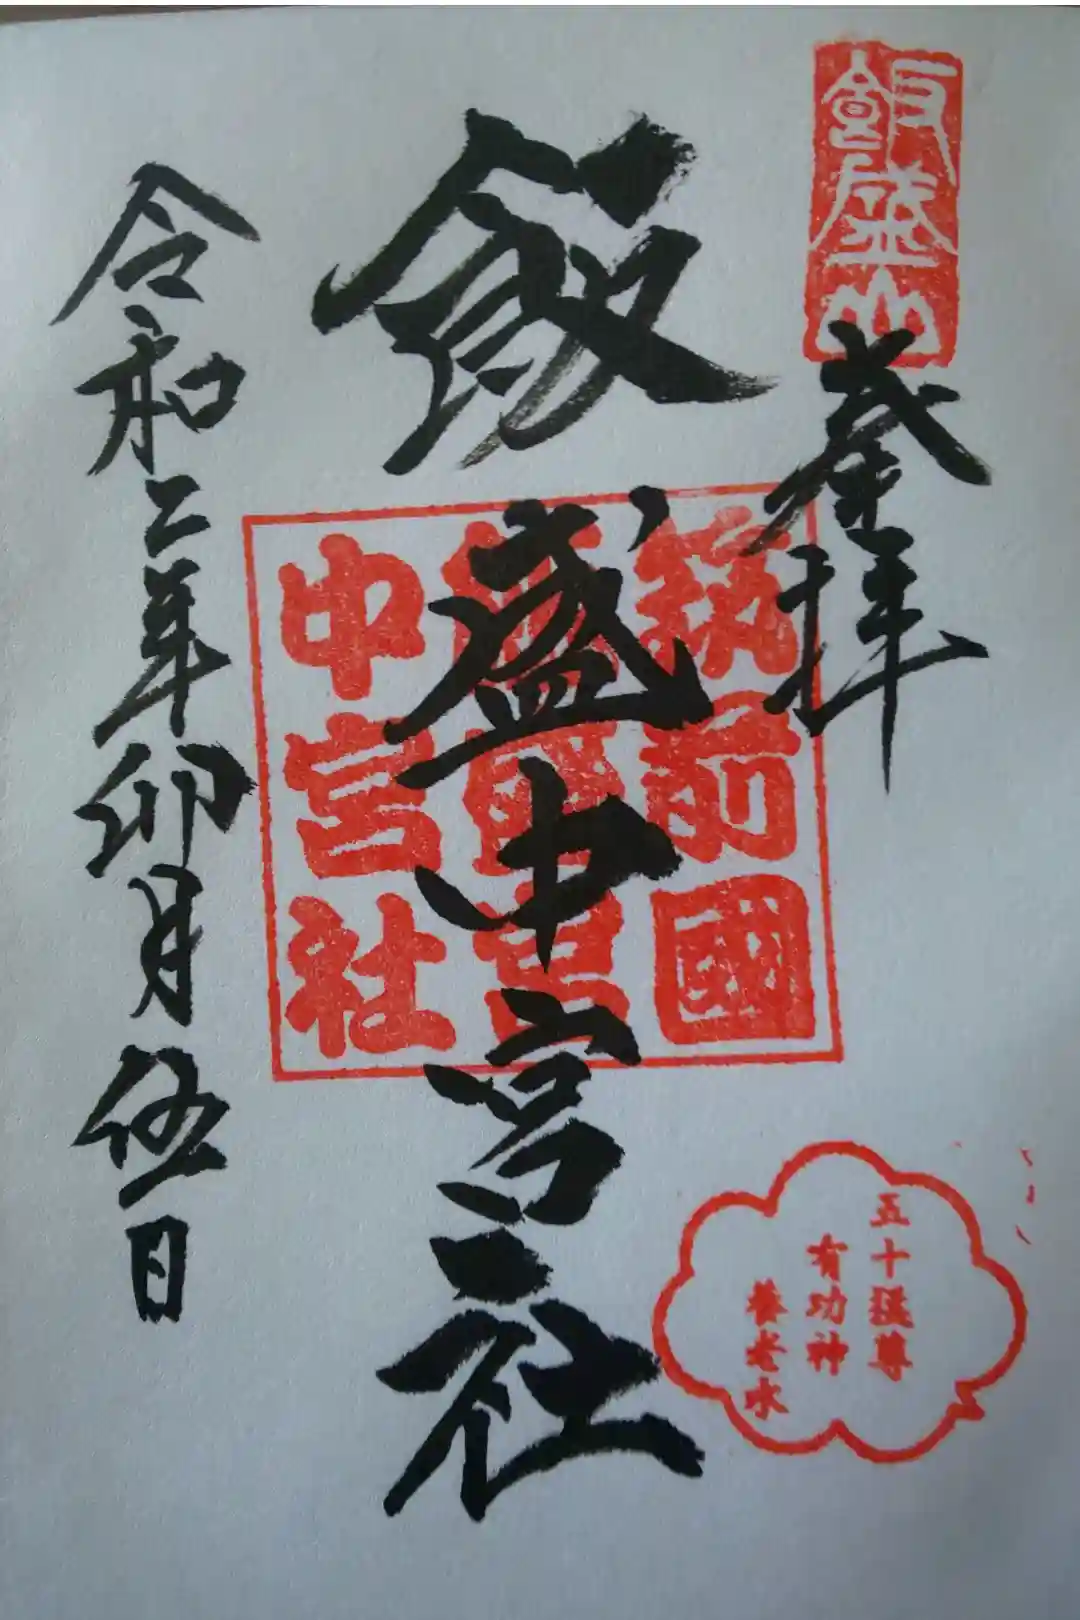 飯盛山
奉拝
筑前國
飯盛宮
中宮社
飯盛中宮社
五十猛尊
有功神
養老水
令和二年卯月伍日